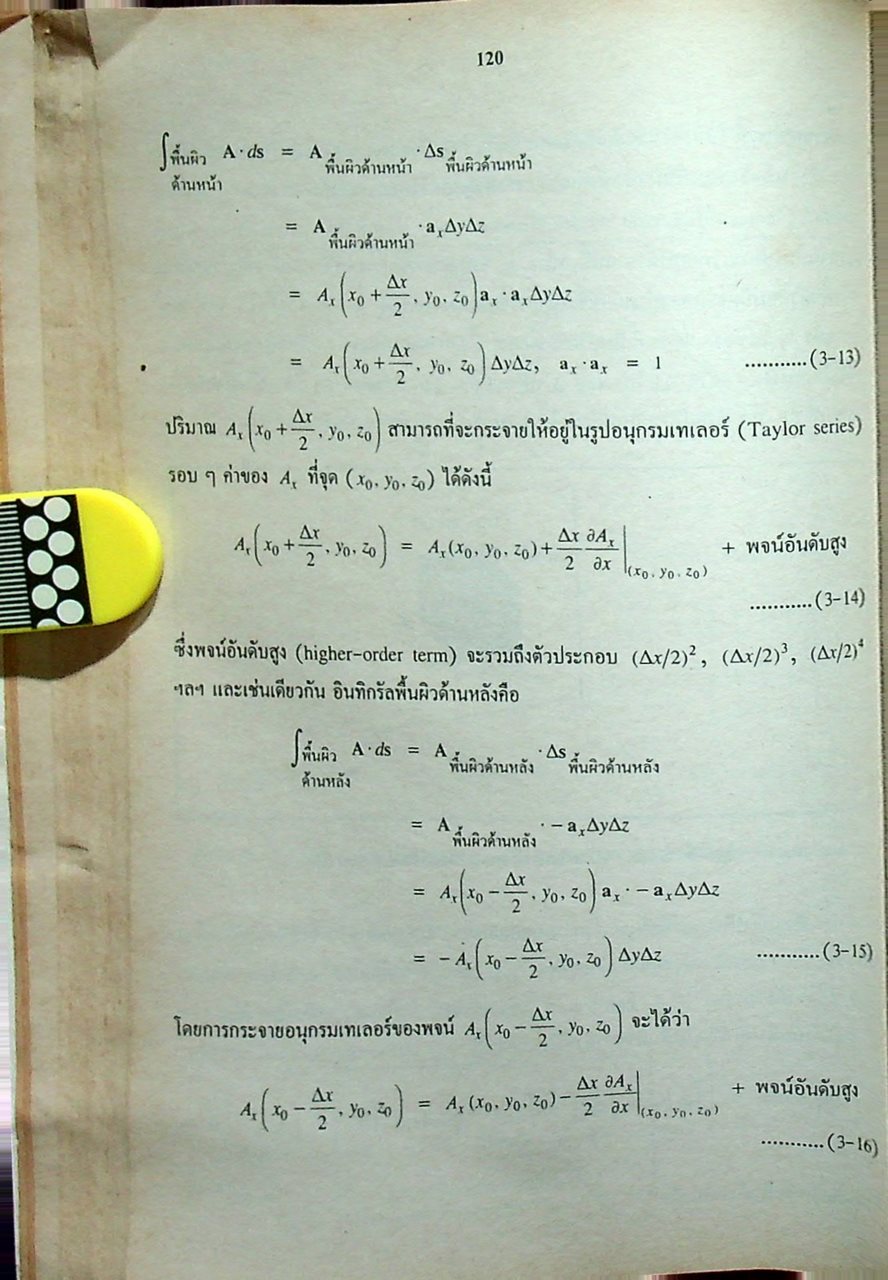 120
∫พื้นผิวด้านหน้า A · ds = A พื้นผิวด้านหน้า · Δs พื้นผิวด้านหน้า
= A พื้นผิวด้านหน้า · aₓΔyΔz
= Aₓ(x₀ + Δx/2, y₀, z₀)aₓ · aₓΔyΔz
= Aₓ(x₀ + Δx/2, y₀, z₀) ΔyΔz, aₓ · aₓ = 1 ...........(3-13)
ปริมาณ Aₓ(x₀ + Δx/2, y₀, z₀) สามารถที่จะกระจายให้อยู่ในรูปอนุกรมเทเลอร์ (Taylor series)
รอบ ๆ ค่าของ Aₓ ที่จุด (x₀, y₀, z₀) ได้ดังนี้
Aₓ(x₀ + Δx/2, y₀, z₀) = Aₓ(x₀, y₀, z₀) + Δx/2 ∂Aₓ/∂x |(x₀, y₀, z₀) + พจน์อันดับสูง
...........(3-14)
ซึ่งพจน์อันดับสูง (higher-order term) จะรวมถึงตัวประกอบ (Δx/2)², (Δx/2)³, (Δx/2)⁴
ฯลฯ และเช่นเดียวกัน อินทิกรัลพื้นผิวด้านหลังคือ
∫พื้นผิวด้านหลัง A · ds = A พื้นผิวด้านหลัง · Δs พื้นผิวด้านหลัง
= A พื้นผิวด้านหลัง · − aₓΔyΔz
= Aₓ(x₀ − Δx/2, y₀, z₀) aₓ · − aₓΔyΔz
= − Aₓ(x₀ − Δx/2, y₀, z₀) ΔyΔz ...........(3-15)
โดยการกระจายอนุกรมเทเลอร์ของพจน์ Aₓ(x₀ − Δx/2, y₀, z₀) จะได้ว่า
Aₓ(x₀ − Δx/2, y₀, z₀) = Aₓ(x₀, y₀, z₀) − Δx/2 ∂Aₓ/∂x |(x₀, y₀, z₀) + พจน์อันดับสูง
...........(3-16)